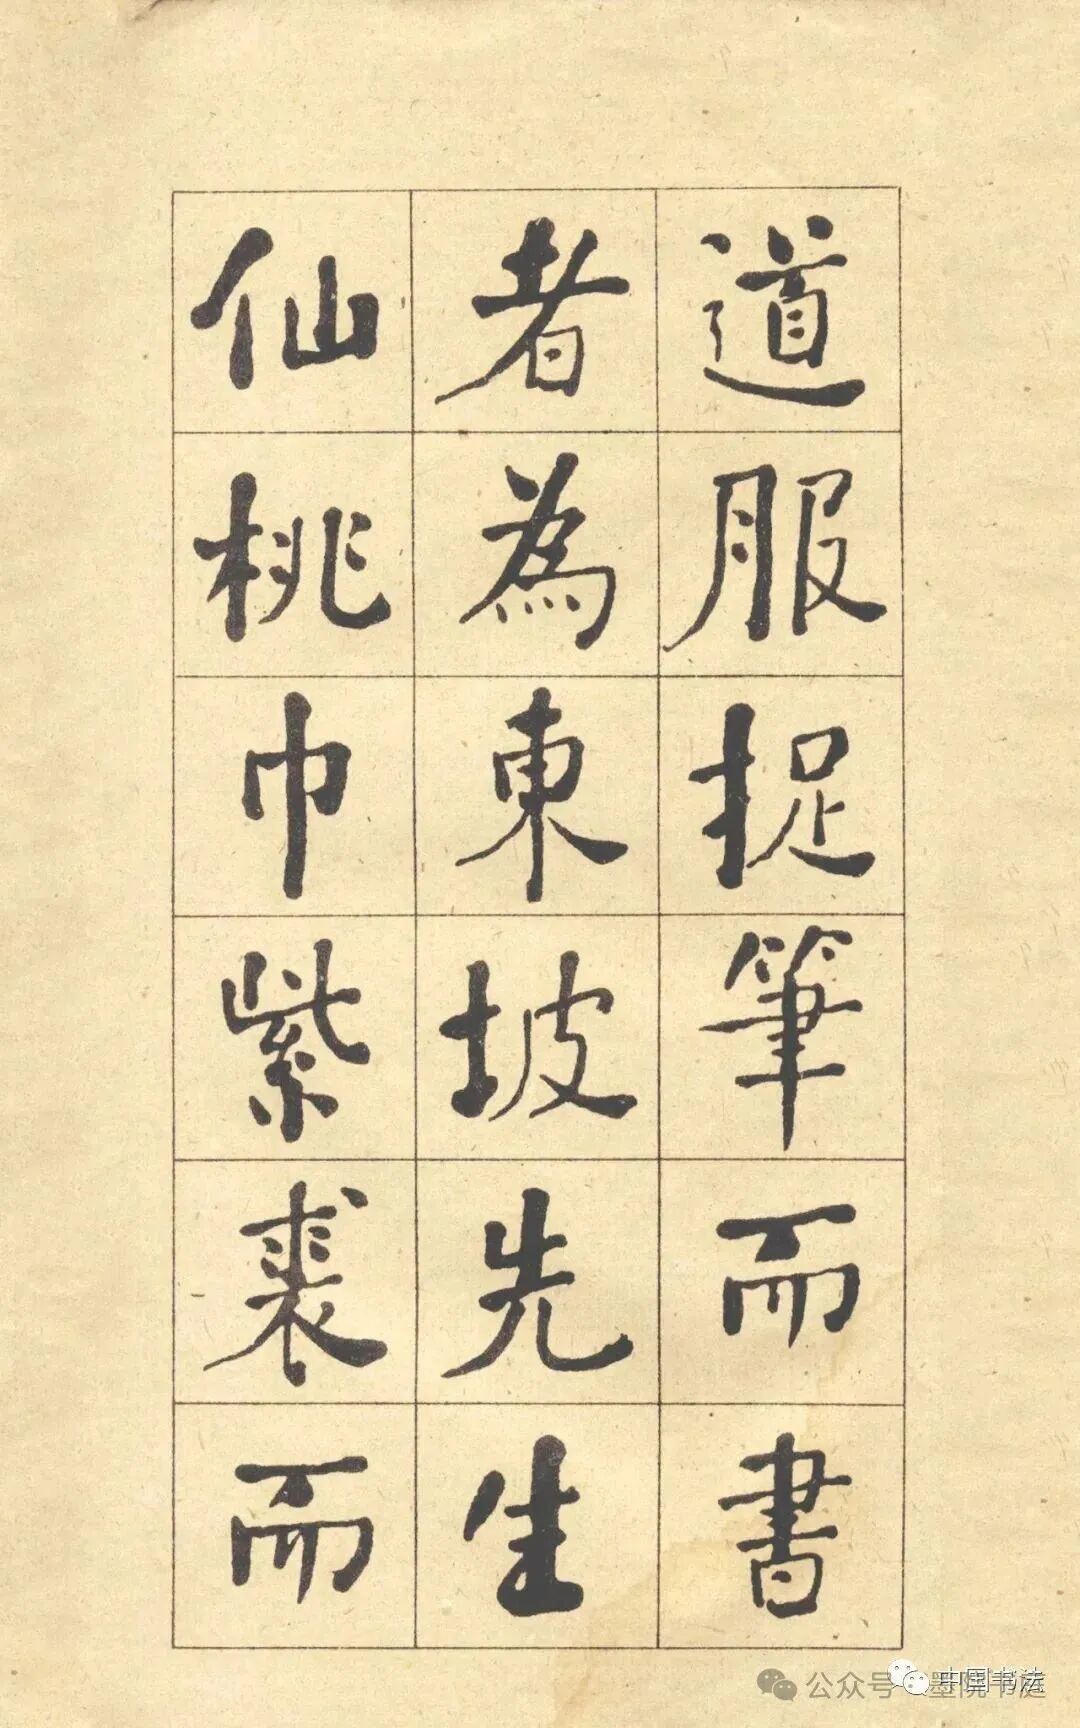 道服捉筆而書
者為東坡先生
仙桃巾紫裘而
公众号 墨院书庭
中国书法